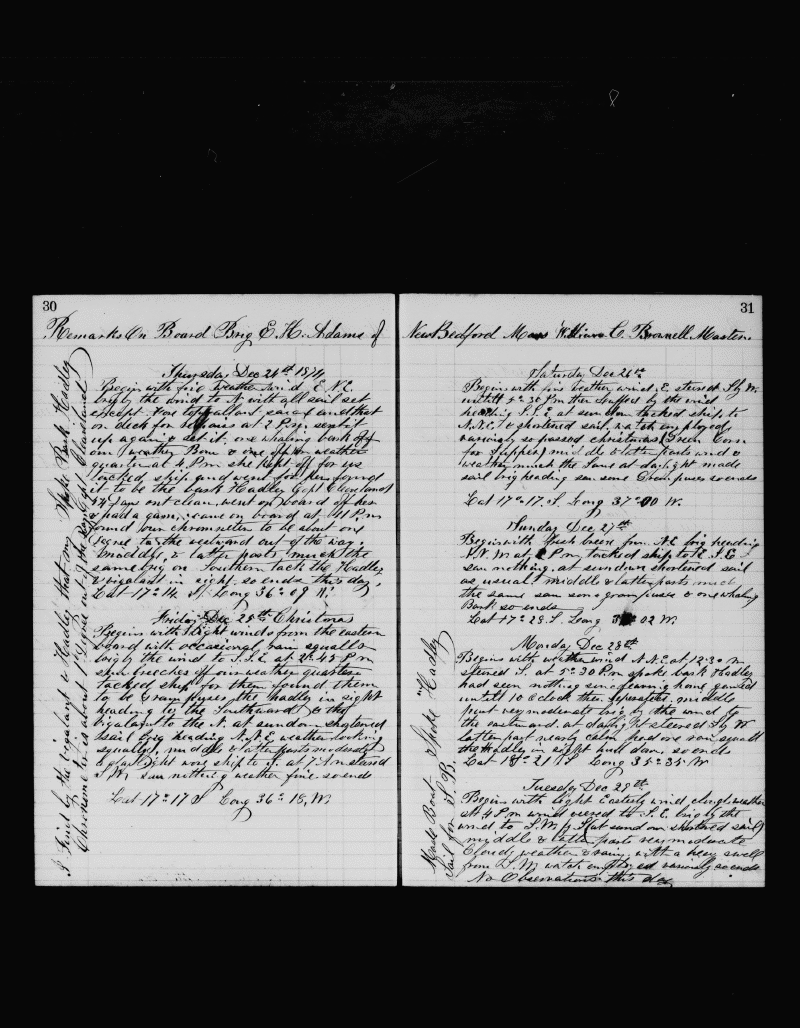 30
Remarks On Board Brig E. H. Adams of
Thursday Dec 24th 1874
Begins with fine weather wind E.N.E.
brig by the wind to N. with all sail set
except fore topgallant sail and that
on deck for at 2 P.m. sent it
up again & set it. one whaling bark off
our weather Bow & one off our weather
quarter at 4 P.m she kept off for us
tacked ship and went for her found
it to be the bark Hadley Capt Cleaveland
out clean, went on board of her
& had a gam, came on board at P.m
found our chronometer to be about one
degree to the westward out of the way.
middle, & latter parts much the
same brig on Southern tack the Hadley
& vigalant in sight, so ends this day
Lat 17°14 S. Long 36°09 W.
Friday Dec 25th Christmas
Begins with Light winds from the eastern
board with occasional rain squalls
brig by the wind to S.S.E. at 2-45 P.m
saw breeches off our weather quarter
tacked ship for them found them
to be Grampuses, the Hadley in sight
heading to the Southward & the
Vigalant to the N. at sundown shortened
sail brig heading N.N.E. weather looking
squally, middle & latter parts moderate
at daylight wore ship to S. at 7 A.m steered
S.W. saw nothing weather fine. so ends
Lat 17°17 S Long 36°18, W.
I find by the vigalant & Hadley that my
Chronometer is about 1 degree out of the way
Spoke Bark Hadley
Capt Cleaveland
31
New Bedford Mass William C. Brownell Master.
Saturday Dec 26th
Begins with fine weather wind E. steered S by W.
untill 5-30 P.m then luffed by the wind
heading S.S.E at sun down tacked ship to
N.N.E. & shortened sail, watch employed
variously so passed christmas (Green Corn
for Supper) middle & latter parts wind &
weather much the same at daylight made
sail brig heading saw some Grampuses so ends
Lat 17°-17. S. Long 37°00 W.
Sunday Dec 27th
Begins with fresh breeze from N.E brig heading
N.N.W. at 2 P.m tacked ship to E.S.E.
saw nothing. at sundown shortened sail
as usual middle & latter parts much
the same saw some grampuses & one whaling
Bark so ends
Lat 17°28. S. Long 02 W.
Monday Dec 28th
Begins with weather wind N.N.E. at 12-30 m
steered S. at 5-30 P.m spoke bark Hadley
had seen nothing since leaving have gamed
untill 10 oclock then seperated. middle
part very moderate brig by the wind to
the eastward. at daylight steered S by W
latter part nearly calm had one rain squall
the Hadley in sight hull down. so ends
Lat 18°21 S Long 35°35 W
Spoke "Hadley"
Tuesday Dec 29th
Begins with light Easterly wind cloudy weather
at 4 P.m wind veered to S.E. brig by the
wind to S.W by S (at sundown shortened sail)
middle & latter parts very moderate
Cloudy weather & rainy with a heavy swell
from S.W watch employed variously so ends
No Observations this day
Made Boat
Sail for S.B.